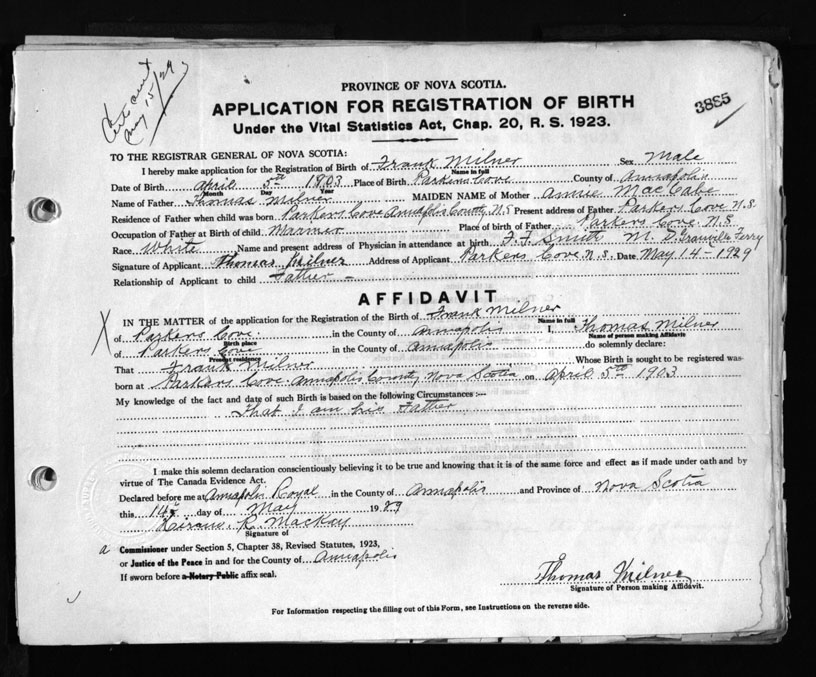 Cert sent
May 15/29
3885
PROVINCE OF NOVA SCOTIA.
APPLICATION FOR REGISTRATION OF BIRTH
Under the Vital Statistics Act, Chap. 20, R. S. 1923.
TO THE REGISTRAR GENERAL OF NOVA SCOTIA:
I hereby make application for the Registration of Birth of Frank Milner Sex Male
Name in full
Date of Birth April 5th 1903 Place of Birth Parkers Cove County of Annapolis
Month Day Year
Name of Father Thomas Milner MAIDEN NAME of Mother Annie MacCabe
Residence of Father when child was born Parkers Cove Annapolis County N.S Present address of Father Parkers Cove N.S.
Occupation of Father at Birth of child Place of birth of Father Parkers Cove N.S.
Race White Name and present address of Physician in attendance at birth F. F. Smith M. D. Granville Ferry
Signature of Applicant Thomas Milner Address of Applicant Parkers Cove N.S. Date May 14-1929
Relationship of Applicant to child Father
AFFIDAVIT
IN THE MATTER of the application for the Registration of the Birth of Frank Milner
Name in full
X of Parkers Cove. in the County of Annapolis I, Thomas Milner
Birth place Name of person making Affidavit
of Parkers Cove in the County of Annapolis do solemnly declare:
Present residence
That Frank Milner Whose Birth is sought to be registered was
born at Parkers Cove Annapolis County, Nova Scotia on April 5th 1903
My knowledge of the fact and date of such Birth is based on the following Circumstances :—
That I am his Father
I make this solemn declaration conscientiously believing it to be true and knowing that it is of the same force and effect as if made under oath and by
virtue of The Canada Evidence Act.
Declared before me at Annapolis Royal in the County of Annapolis and Province of Nova Scotia
this 14th day of May 1929
Hiram R. MacKay
Signature of
a Commissioner under Section 5, Chapter 38, Revised Statutes, 1923,
or Justice of the Peace in and for the County of Annapolis
If sworn before a Notary Public affix seal.
Thomas Milner
Signature of Person making Affidavit.
For Information respecting the filling out of this Form, see Instructions on the reverse side.